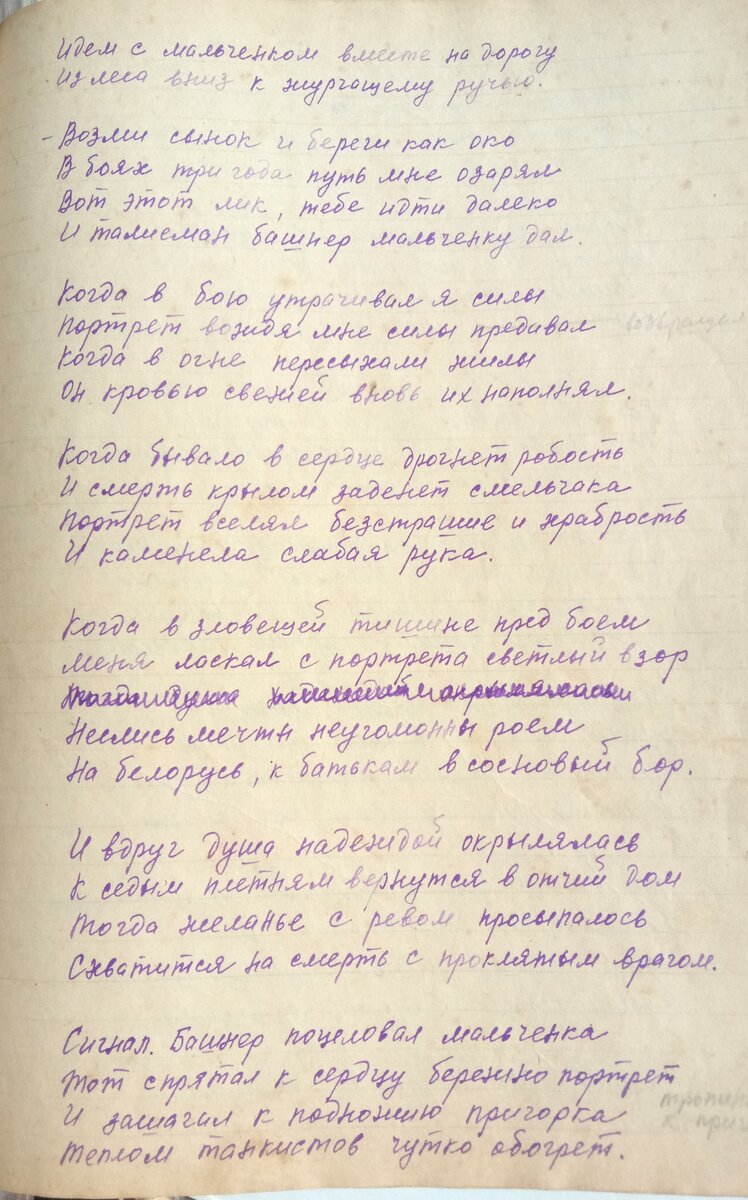 Идем с мальченком вместе на дорогу
Из леса вниз к журчащему ручью.
- Возми сынок и береги как око
В боях три года путь мне озарял
Вот этот лик, тебе идти далеко
И талисман башнер мальченку дал.
Когда в бою утрачивал я силы
Портрет вождя мне силы предавал возвращал
Когда в огне пересыхали жилы
Он кровью свежей вновь их наполнял.
Когда бывало в сердце дрогнет робость
И смерть крылом заденет смельчака
Портрет вселял безстрашие и храбрость
И каменела слабая рука.
Когда в зловещей тишине пред боем
меня ласкал с портрета светлый взор
Неслись мечты неугомонны роем
На белорусь, к батькам в сосновый бор.
И вдруг душа надеждой окрылялась
К седым плетням вернутся в отчий дом
Тогда желанье с ревом просыпалось
Схватится на смерть с проклятым врагом.
Сигнал. Башнер поцеловал мальченка
Тот спрятал к сердцу бережно портрет
И зашагал к подножию пригорка
Теплом танкистов чутко обогрет.